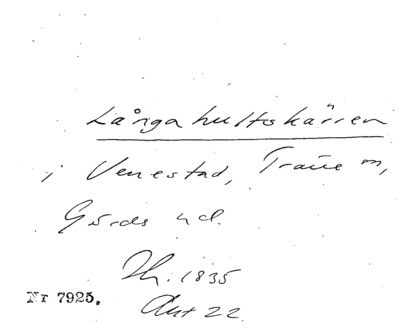 Långahultskärren
i Venestad, Trane m,
Gärds hd.
Th. 1835
Nr 7925. Akt 22